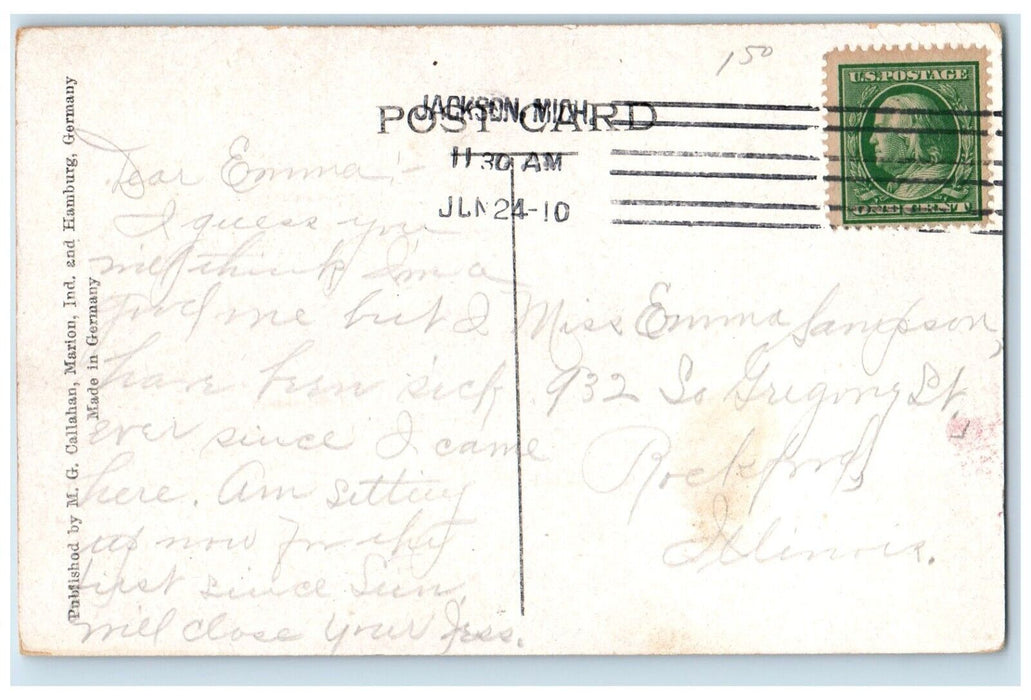 150
U.S.POSTAGE
ONE CENT
POST CARD
JACKSON, MICH.
11 30 AM
JUN 24-10
Published by M. G. Callahan, Marion, Ind. and Hamburg, Germany
Made in Germany
Dear Emma:-
I guess you
will think Im a
me but I
have been sick
ever since I came
here. Am sitting
up now for the
first since Sun.
will close your Jess.
Miss Emma Sampson,
932 So Gregory St.
Rockford,
Illinois.